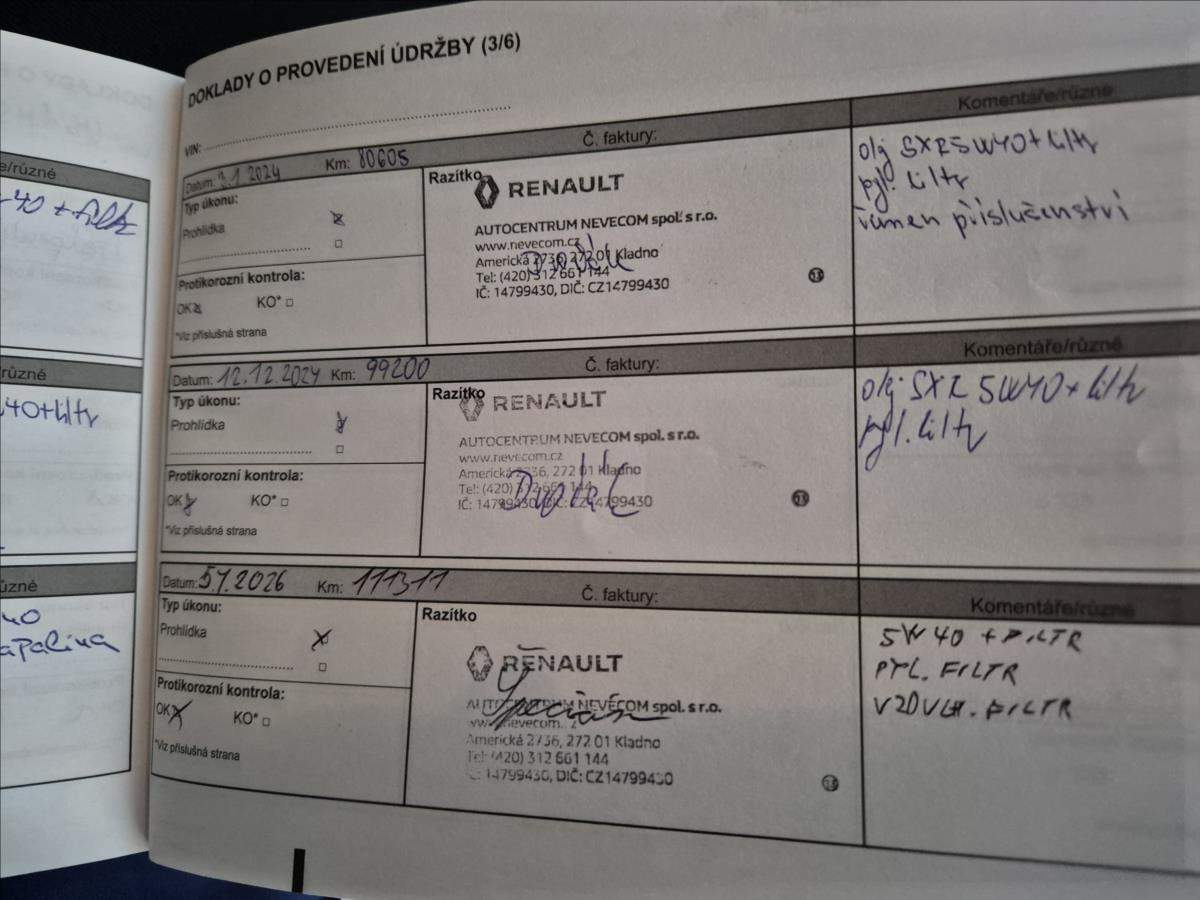 DOKLADY O PROVEDENÍ ÚDRŽBY (3/6)
VIN:
Datum: 3.1.2024 Km: 80605 Č. faktury: Komentáře/různé
Typ úkonu:
Prohlídka
Protikorozní kontrola:
OK KO*
*Viz příslušná strana
Razítko
RENAULT
AUTOCENTRUM NEVECOM spol. s r.o.
www.nevecom.cz
Americká 2736, 272 01 Kladno
Tel: (420) 312 661 144
IČ: 14799430, DIČ: CZ14799430
13
olej SXR 5W40 + filtr
pyl. filtr
řamen příslušenství
Datum: 12.12.2024 Km: 99200 Č. faktury: Komentáře/různé
Typ úkonu:
Prohlídka
Protikorozní kontrola:
OK KO*
*Viz příslušná strana
Razítko
RENAULT
AUTOCENTRUM NEVECOM spol. s r.o.
www.nevecom.cz
Americká 2736, 272 01 Kladno
Tel: (420) 312 661 144
IČ: 14799430, DIČ: CZ14799430
13
olej SXR 5W40 + filtr
pyl. filtr
Datum: 5.1.2026 Km: 111311 Č. faktury: Komentáře/různé
Typ úkonu:
Prohlídka
Protikorozní kontrola:
OK KO*
*Viz příslušná strana
Razítko
RENAULT
AUTOCENTRUM NEVECOM spol. s r.o.
www.nevecom.cz
Americká 2736, 272 01 Kladno
Tel: (420) 312 661 144
IČ: 14799430, DIČ: CZ14799430
13
5W40 + FILTR
PYL. FILTR
VZDUCH. FILTR
e/různé
-40 + filtr
různé
40+filtr
ůzné